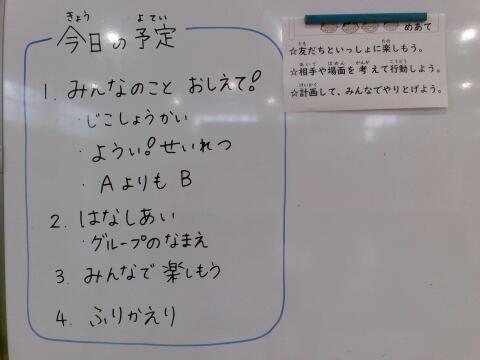 今日の予定
きょう よてい
1. みんなのこと おしえて!
・じこしょうかい
・ようい!せいれつ
・AよりもB
2. はなしあい
・グループのなまえ
3. みんなで楽しもう
4. ふりかえり
めあて
とも たの
☆友だちといっしょに楽しもう。
あいて ばめん かんが こうどう
☆相手や場面を考えて行動しよう。
けいかく
☆計画して、みんなでやりとげよう。